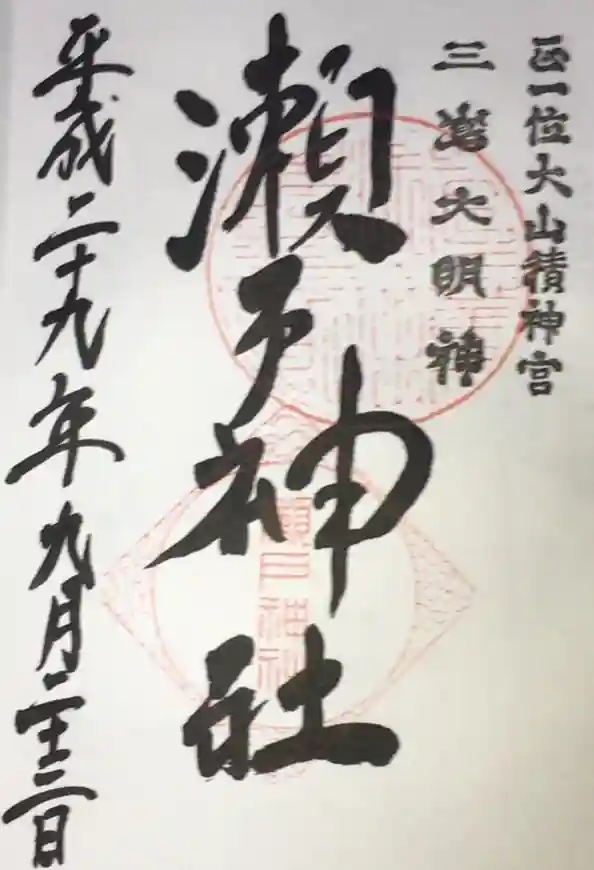 正一位大山積神宮
三嶌大明神
瀬戸神社
平成二十九年九月二十三日